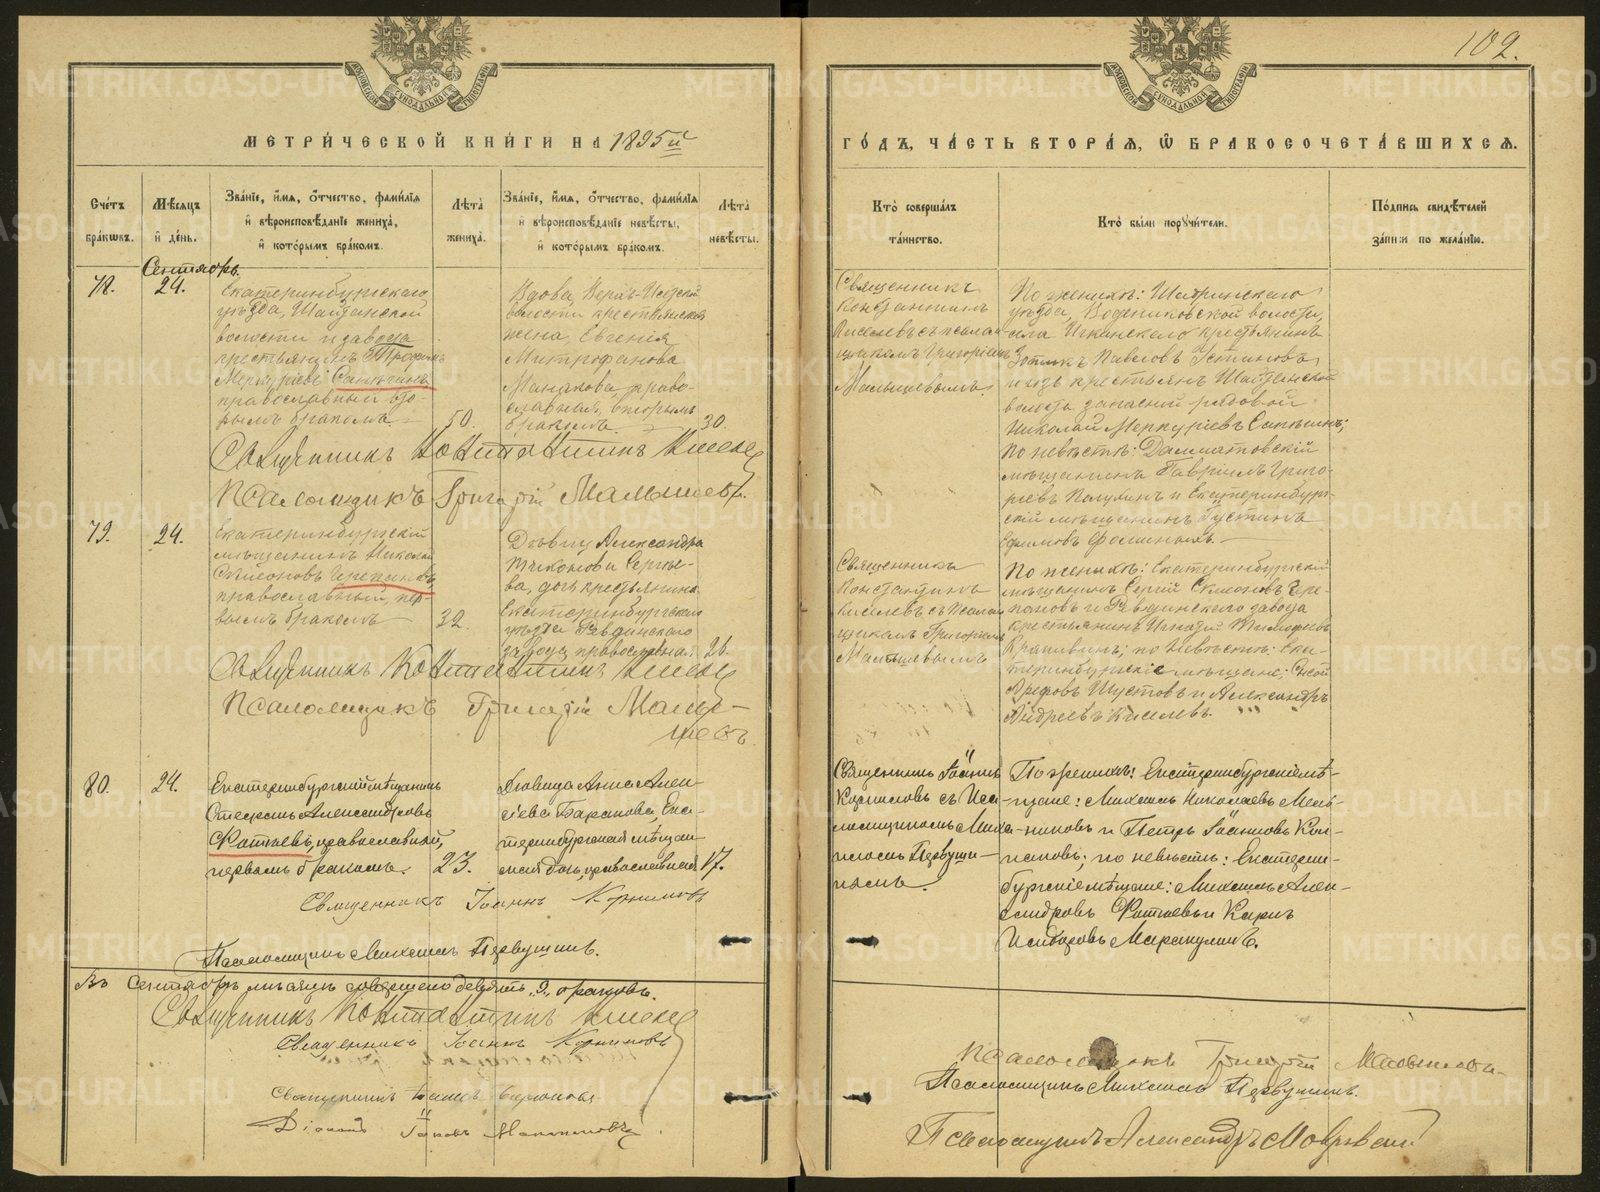 102.
МОСКОВСКОЙ СѴНОДАЛЬНОЙ ТИПОГРАФІИ
МОСКОВСКОЙ СѴНОДАЛЬНОЙ ТИПОГРАФІИ
МЕТРИ́ЧЕСКОЙ КНИ́ГИ НА 1895й
ГО́ДЪ, ЧА́СТЬ ВТОРА́Я, Ѡ БРАКОСОЧЕТА́ВШИХСЯ.
Сче́тъ
бра́кѡвъ.
Мѣ́сяцъ
и҆ де́нь.
Зва́нїе, и҆́мя, ѻ҆́тчество, фами́лїя
и҆ вѣроисповѣ́данїе жениха̀,
и҆ кото́рымъ бра́комъ.
Лѣ́та
жениха̀.
Зва́нїе, и҆́мя, ѻ҆́тчество, фами́лїя
и҆ вѣроисповѣ́данїе невѣ́сты,
и҆ кото́рымъ бра́комъ.
Лѣ́та
невѣ́сты.
Кто̀ соверша́лъ
та́инство.
Кто̀ бы́ли порꙋчи́тели.
По́дпись свидѣ́телей
за́писи по жела́нїю.
Сентябрь.
78.
24.
Екатеринбургскаго
уѣзда, Шайтанской
волости и завода
крестьянинъ Трофимъ
Меркурьевъ
православный, вто-
рымъ бракомъ.
50.
Вдова, Верхъ-Исетской
волости крестьянская
жена, Евгенія
Митрофанова
Манакова, право-
славная, вторымъ
бракомъ.
30.
Священникъ
Константинъ
Киселевъ съ псалом-
щикомъ Григоріемъ
Малышевымъ.
По женихѣ: Шадринскаго
уѣзда, Водениковской волости,
села крестьянинъ
Зотикъ Павловъ Устиновъ
и изъ крестьянъ Шайтанской
волости запасной рядовой
Николай Меркурьевъ
по невѣстѣ: Далматовскій
мѣщанинъ Гавріилъ Григо-
рьевъ и Екатеринбург-
скій мѣщанинъ Густинъ
Ефимовъ Фоминыхъ.
Священникъ Константинъ Киселевъ
Псаломщикъ Григорій Малышевъ.
79.
24.
Екатеринбургскій
мѣщанинъ Николай
Симеоновъ Черепановъ,
православный, пер-
вымъ бракомъ
32.
Дѣвица Александра
Тихонова Сергѣе-
ва, дочь крестьянина
Екатеринбургскаго
уѣзда Ревдинскаго
завода, православная.
26.
Священникъ
Константинъ
Киселевъ съ псалом-
щикомъ Григоріемъ
Малышевымъ
По женихѣ: Екатеринбургскій
мѣщанинъ Сергій Симеоновъ Чере-
пановъ и Ревдинскаго завода
крестьянинъ Игнатій Тимофеевъ
Крапивинъ; по невѣстѣ: Ека-
теринбургскіе мѣщане:
Арефовъ Шустовъ и Александръ
Андреевъ Киселевъ.
Священникъ Константинъ Киселевъ
Псаломщикъ Григорій Малы-
шевъ.
80.
24.
Екатеринбургскій мѣщанинъ
Стефанъ Александровъ
Фотіевъ, православный,
первымъ бракомъ.
23.
Дѣвица Анна Алек-
сѣева Баранова, Ека-
теринбургская мѣщан-
ская дочь, православная
17.
Священникъ Іоаннъ
Корниловъ съ Пса-
ломщикомъ Миха-
иломъ Первуши-
нымъ.
По женихѣ: Екатеринбургскіе мѣ-
щане: Михаилъ Николаевъ Мель-
никовъ и Петръ Іоанновъ Кон-
по невѣстѣ: Екатерин-
бургскіе мѣщане: Михаилъ Алек-
сандровъ Фотіевъ и Карпъ
Маракулинъ.
Священникъ Іоаннъ Корниловъ
Псаломщикъ Михаилъ Первушинъ.
Въ Сентябрѣ мѣсяцѣ совершено девять „9„ браковъ.
Священникъ Константинъ Киселевъ
Священникъ Іоаннъ Корниловъ
Священникъ Іоаннъ
Діаконъ Іаковъ
Псаломщикъ Григорій Малышевъ
Псаломщикъ Михаилъ Первушинъ.
Псаломщикъ Александръ
METRIKI.GASO-URAL.RU